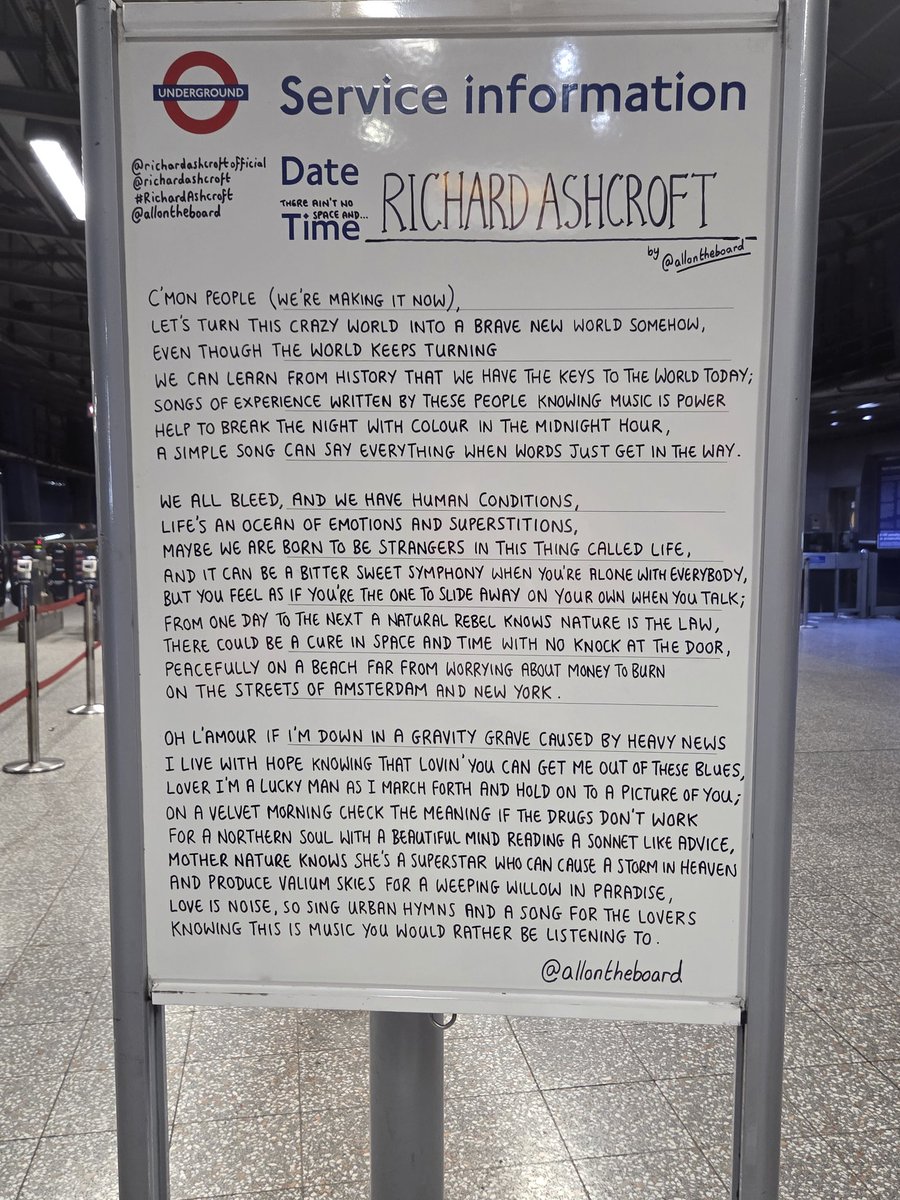 UNDERGROUND
Service information
@richardashcroftofficial
@richardashcroft
#RichardAshcroft
@allontheboard
Date
THERE AIN'T NO
SPACE AND...
Time
RICHARD ASHCROFT
by @allontheboard
C'MON PEOPLE (WE'RE MAKING IT NOW),
LET'S TURN THIS CRAZY WORLD INTO A BRAVE NEW WORLD SOMEHOW,
EVEN THOUGH THE WORLD KEEPS TURNING
WE CAN LEARN FROM HISTORY THAT WE HAVE THE KEYS TO THE WORLD TODAY;
SONGS OF EXPERIENCE WRITTEN BY THESE PEOPLE KNOWING MUSIC IS POWER
HELP TO BREAK THE NIGHT WITH COLOUR IN THE MIDNIGHT HOUR,
A SIMPLE SONG CAN SAY EVERYTHING WHEN WORDS JUST GET IN THE WAY.
WE ALL BLEED, AND WE HAVE HUMAN CONDITIONS,
LIFE'S AN OCEAN OF EMOTIONS AND SUPERSTITIONS,
MAYBE WE ARE BORN TO BE STRANGERS IN THIS THING CALLED LIFE,
AND IT CAN BE A BITTER SWEET SYMPHONY WHEN YOU'RE ALONE WITH EVERYBODY,
BUT YOU FEEL AS IF YOU'RE THE ONE TO SLIDE AWAY ON YOUR OWN WHEN YOU TALK;
FROM ONE DAY TO THE NEXT A NATURAL REBEL KNOWS NATURE IS THE LAW,
THERE COULD BE A CURE IN SPACE AND TIME WITH NO KNOCK AT THE DOOR,
PEACEFULLY ON A BEACH FAR FROM WORRYING ABOUT MONEY TO BURN
ON THE STREETS OF AMSTERDAM AND NEW YORK.
OH L'AMOUR IF I'M DOWN IN A GRAVITY GRAVE CAUSED BY HEAVY NEWS
I LIVE WITH HOPE KNOWING THAT LOVIN' YOU CAN GET ME OUT OF THESE BLUES,
LOVER I'M A LUCKY MAN AS I MARCH FORTH AND HOLD ON TO A PICTURE OF YOU;
ON A VELVET MORNING CHECK THE MEANING IF THE DRUGS DON'T WORK
FOR A NORTHERN SOUL WITH A BEAUTIFUL MIND READING A SONNET LIKE ADVICE,
MOTHER NATURE KNOWS SHE'S A SUPERSTAR WHO CAN CAUSE A STORM IN HEAVEN
AND PRODUCE VALIUM SKIES FOR A WEEPING WILLOW IN PARADISE,
LOVE IS NOISE, SO SING URBAN HYMNS AND A SONG FOR THE LOVERS
KNOWING THIS IS MUSIC YOU WOULD RATHER BE LISTENING TO.
@allontheboard